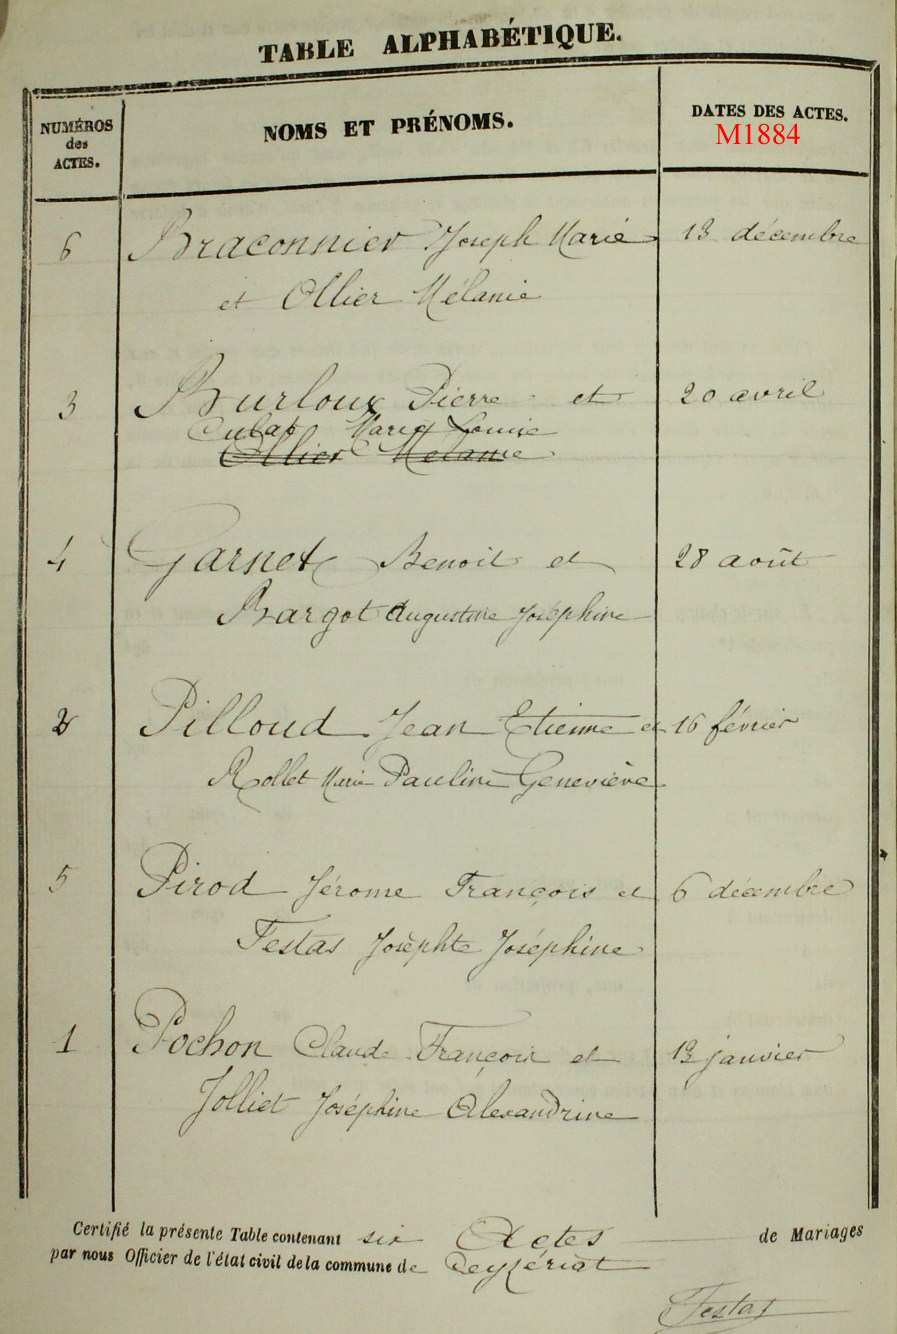 TABLE ALPHABÉTIQUE.
NUMÉROS
des
ACTES.
NOMS ET PRÉNOMS.
DATES DES ACTES.
M1884
6 Braconnier Joseph Marie 13 décembre
et Ollier Mélanie
3 Burloux Pierre et 20 avril
Culas Marie Louise
Ollier Mélanie
4 Garnet Benoit et 28 août
Bargot Augustine Joséphine
2 Pilloud Jean Etienne et 16 février
Rollet Marie Pauline Geneviève
5 Pirod Jérome François et 6 décembre
Festas Josephte Joséphine
1 Pochon Claude François et 13 janvier
Jolliet Joséphine Alexandrine
Certifié la présente Table contenant six Actes de Mariages
par nous Officier de l'état civil de la commune de Ceyzériat
Festas